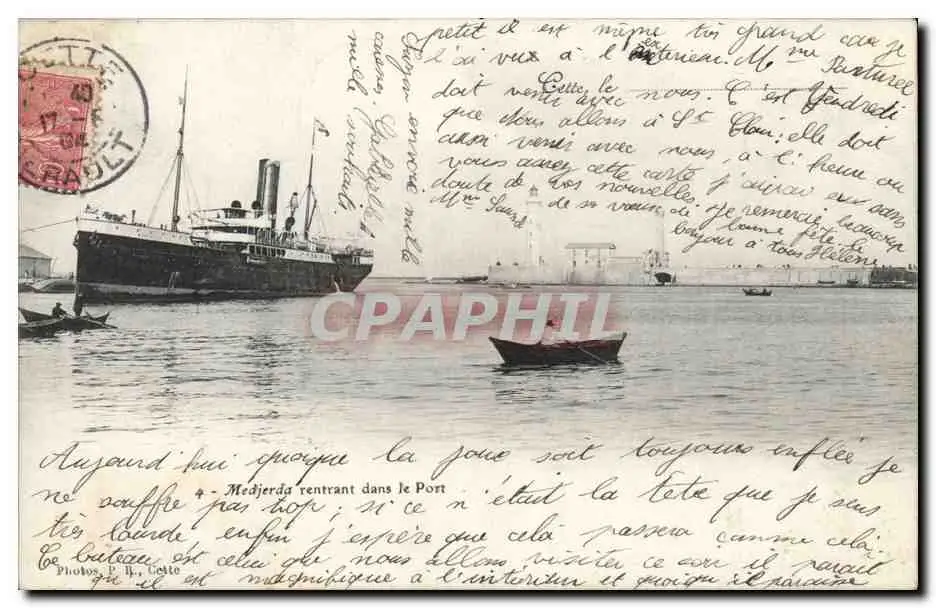 Aujourd'hui quoique la joue soit toujours enflée je
ne souffre pas trop; si ce n'était la tête que je sens
très lourde enfin j'espère que celà passera comme celà.
Ce bateau est celui que nous allons visiter ce soir il parait
qu'il est magnifique à l'intérieur et quoiqu'il paraisse
petit il est même très grand car je
l'ai vu à l'extérieur. Mme
doit venir avec nous. C'est Vendredi
que nous allons à St Clair: elle doit
aussi venir avec nous, à l'heure où
vous aurez cette carte j'aurai eu sans
doute de vos nouvelles. Je remercie beaucoup
Mme de ses vœux de bonne fête. Le
bonjour à tous Hélène
envoie mille
caresses. Gabrielle
mille
Cette, le
4 - Medjerda rentrant dans le Port
Photos. P. R., Cette
CETTE
17
HÉRAULT
CPAPHIL